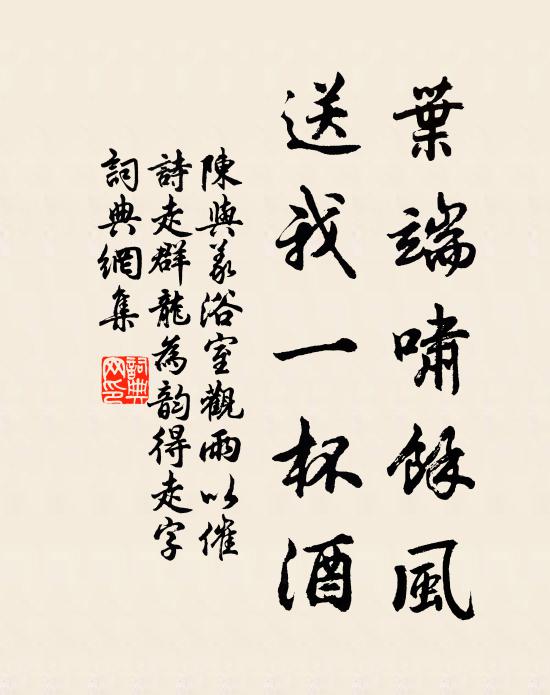 葉端嘯餘風
送我一杯酒
陳與義浴室觀雨以催
詩走群龍為韵得走字
詞典網集
詞典
网印